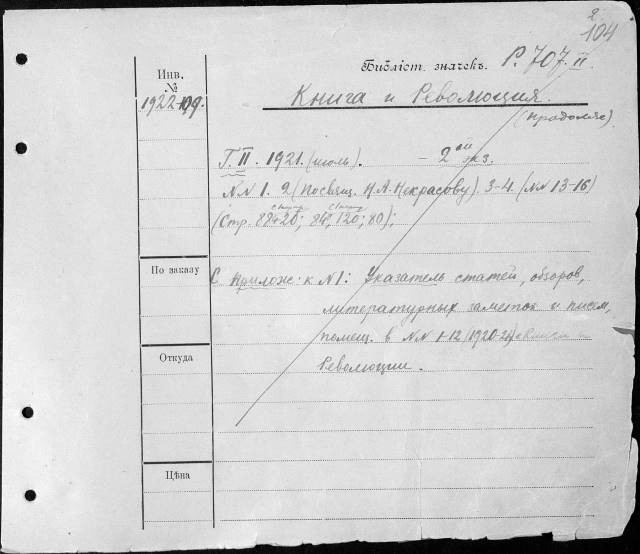 2
104
Библіот. значекъ. Р. 707. II.
Инв.
№
1922-199.
Книга и Революция.
(продолж.)
Г. II. 1921. (июль). - 2ой экз.
NN 1. 2 (Посвящ. Н. А. Некрасову). 3-4. (NN 13-16)
(Стр. 88+20; 84, 120; 80);
По заказу
С прилож. к N 1: Указатель статей, обзоров,
литературных заметок и писем,
помещ. в NN 1-12 (1920-21)
Революции.
Откуда
Цѣна